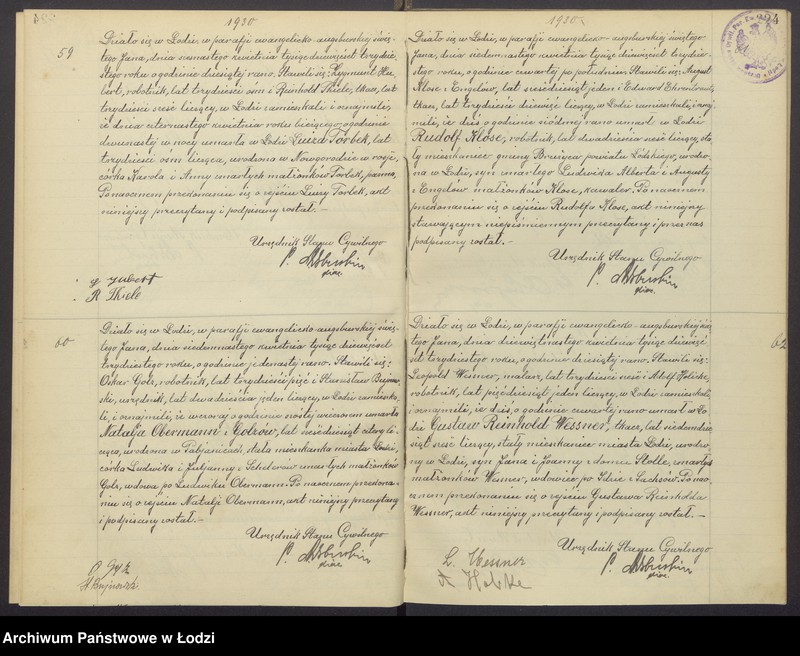 1930
59
Działo się w Łodzi, w parafji ewangelicko-augsburskiej świętego Jana, dnia
tego Jana, dnia osmnastego kwietnia tysiąc dziewięćset trzydzie-
stego roku o godzinie dziesiątej rano. Stawili się: Zygmunt Hu-
bert, robotnik, lat trzydzieści ośm i Reinhold Thiele, tkacz, lat
trzydzieści sześć liczący, w Łodzi zamieszkali i oznajmili,
że dnia czternastego kwietnia roku bieżącego o godzinie
dwunastej w nocy umarła w Łodzi Luiza Torbek, lat
trzydzieści ośm licząca, urodzona w Nowgorodzie w rosji,
córka Karola i Anny zmarłych małżonków Torbek, panna.
Po naocznem przekonaniu się o zejściu Luizy Torbek, akt
niniejszy przeczytany i podpisany został. —
Urzędnik Stanu Cywilnego
Hubert
R. Thiele
60
Działo się w Łodzi, w parafji ewangelicko-augsburskiej świę-
tego Jana, dnia siedemnastego kwietnia tysiąc dziewięćset
trzydziestego roku, o godzinie jedenastej rano. Stawili się:
Oskar Golz, robotnik, lat trzydzieści pięć i Stanisław
urzędnik, lat dwadzieścia jeden liczący, w Łodzi zamieszka-
li, i oznajmili, że wczoraj o godzinie szóstej wieczorem umarła
Natalja Obermann z Golzów, lat sześćdziesiąt cztery li-
cząca, urodzona w Pabjanicach, stała mieszkanka miasta Łodzi,
córka Ludwika i Juljanny z Schelerów zmarłych małżonków
Golz, wdowa po Ludwiku Obermann. Po naocznem przekona-
niu się o zejściu Natalji Obermann, akt niniejszy przeczytany
i podpisany został. —
Urzędnik Stanu Cywilnego
1930
Działo się w Łodzi, w parafji ewangelicko-augsburskiej świętego
Jana, dnia siedemnastego kwietnia tysiąc dziewięćset trzydzie-
stego roku, o godzinie czwartej po południu. Stawili się: August
Klose z Engelów, lat sześćdziesiąt jeden i Edward
tkacz, lat trzydzieści dziewięć liczący, w Łodzi zamieszkali, i oznaj-
mili, że dziś o godzinie siódmej rano umarł w Łodzi
Rudolf Klose, robotnik, lat dwadzieścia sześć liczący, sta-
ły mieszkaniec gminy Brużyca powiatu Łódzkiego, urodzo-
ny w Łodzi, syn zmarłego Ludwika Alberta i Augusty
z Engelów małżonków Klose, kawaler. Po naocznem
przekonaniu się o zejściu Rudolfa Klose, akt niniejszy
stawającym niepiśmiennym przeczytany i przez nas
podpisany został. —
Urzędnik Stanu Cywilnego
62
Działo się w Łodzi, w parafji ewangelicko-augsburskiej świę-
tego Jana, dnia dziewiętnastego kwietnia tysiąc dziewięć-
set trzydziestego roku, o godzinie dziesiątej rano. Stawili się:
Leopold Wessner, malarz, lat trzydzieści sześć i Adolf
robotnik, lat pięćdziesiąt jeden liczący, w Łodzi zamieszkali,
i oznajmili, że dziś, o godzinie czwartej rano umarł w Ło-
dzi Gustaw Reinhold Wessner, tkacz, lat siedemdzie-
siąt sześć liczący, stały mieszkaniec miasta Łodzi, urodzo-
ny w Łodzi, syn Jana i Joanny z domu Stolle, zmarłych
małżonków Wessner, wdowiec po Idzie z Sachsów. Po nao-
cznem przekonaniu się o zejściu Gustawa Reinholda
Wessner, akt niniejszy przeczytany i podpisany został. —
Urzędnik Stanu Cywilnego
L. Wessner
Archiwum Państwowe w Łodzi